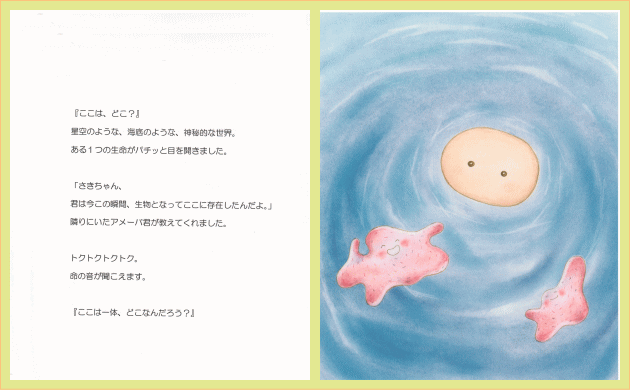 『ここは、どこ？』
星空のような、海底のような、神秘的な世界。
ある１つの生命がパチッと目を開きました。
「さきちゃん、
君は今この瞬間、生物となってここに存在したんだよ。」
隣りにいたアメーバ君が教えてくれました。
トクトクトクトク。
命の音が聞こえます。
『ここは一体、どこなんだろう？』